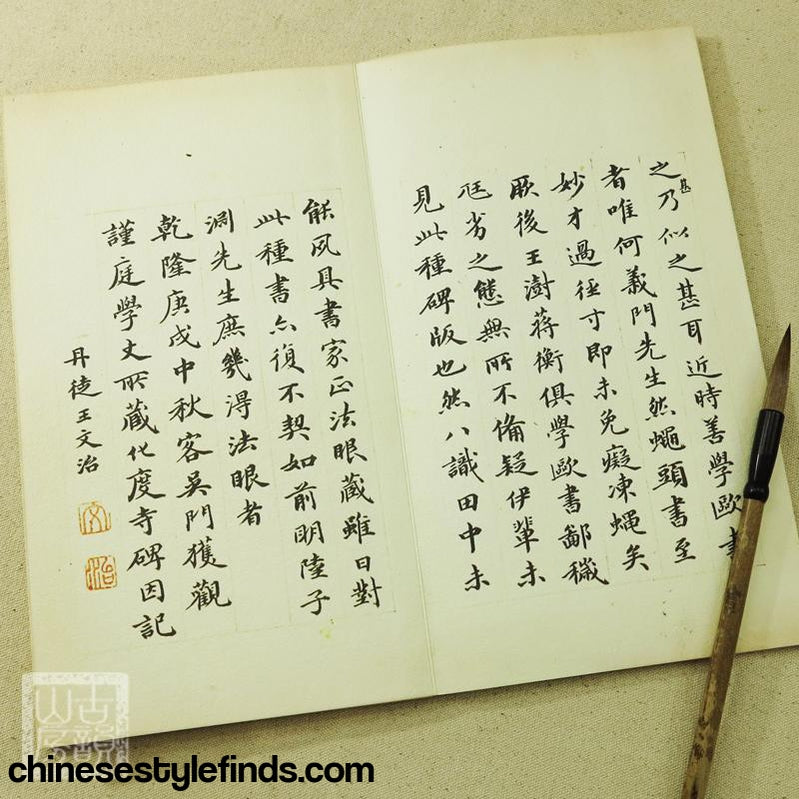 之乃似之甚耳近時善學歐書
甚
者唯何義門先生然蠅頭書至
妙才過徑寸即未免癡凍蠅矣
厥後王澍蔣衡俱學歐書鄙穢
尫劣之態無所不備疑伊輩未
見此種碑版也然八識田中未
能夙具書家正法眼藏雖日對
此種書亦復不契如前明陸子
淵先生庶幾得法眼者
乾隆庚戌中秋客吳門獲觀
謹庭學丈所藏化度寺碑因記
丹徒王文治
文
治
chinesestylefinds.com